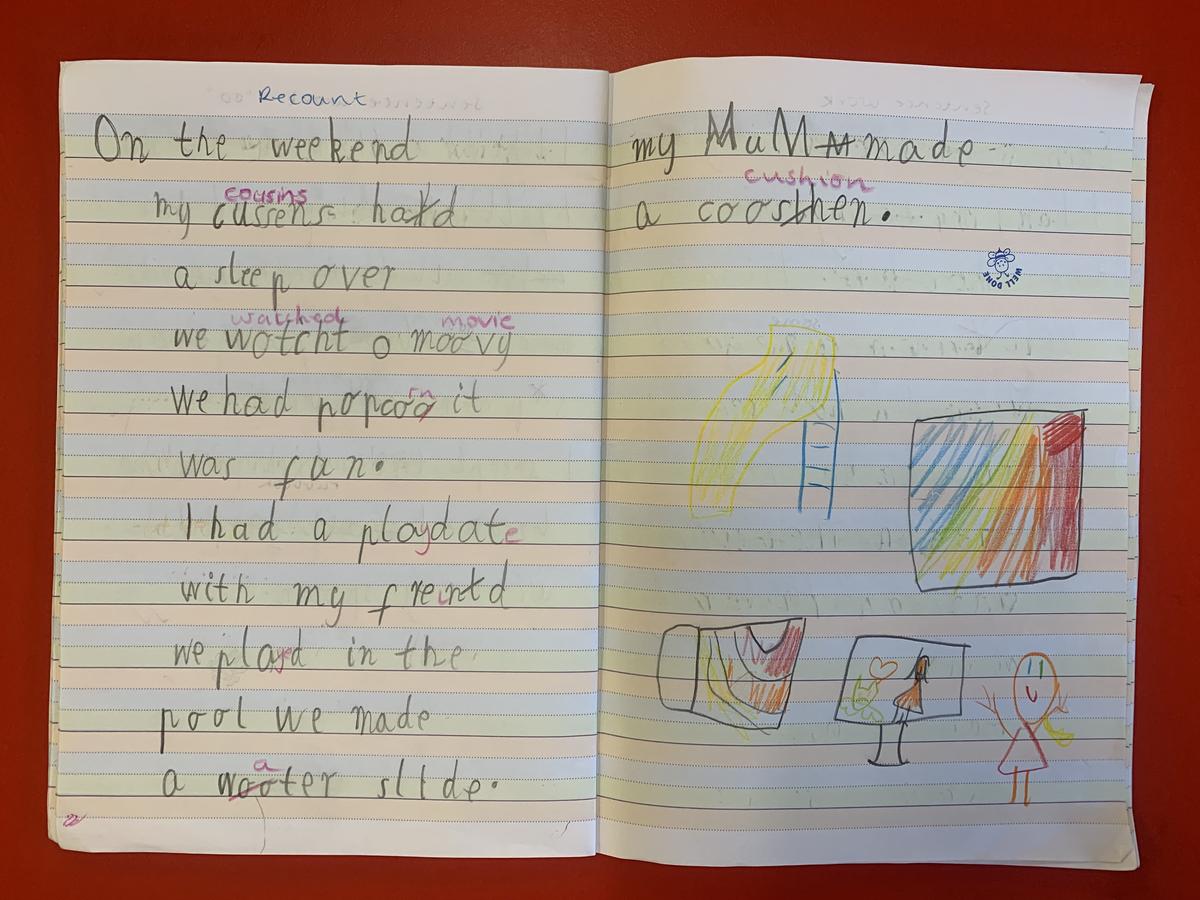 Recount
On the weekend
cousins
my cussens hatd
a sleep over
watched movie
we wotcht o moovy
rn
we had popcoo it
was fun.
I had a playdate
with my freintd
we playd in the
pool we made
a
a wooter slide.
my MuM made
cushion
a coosthen.
WELL DONE